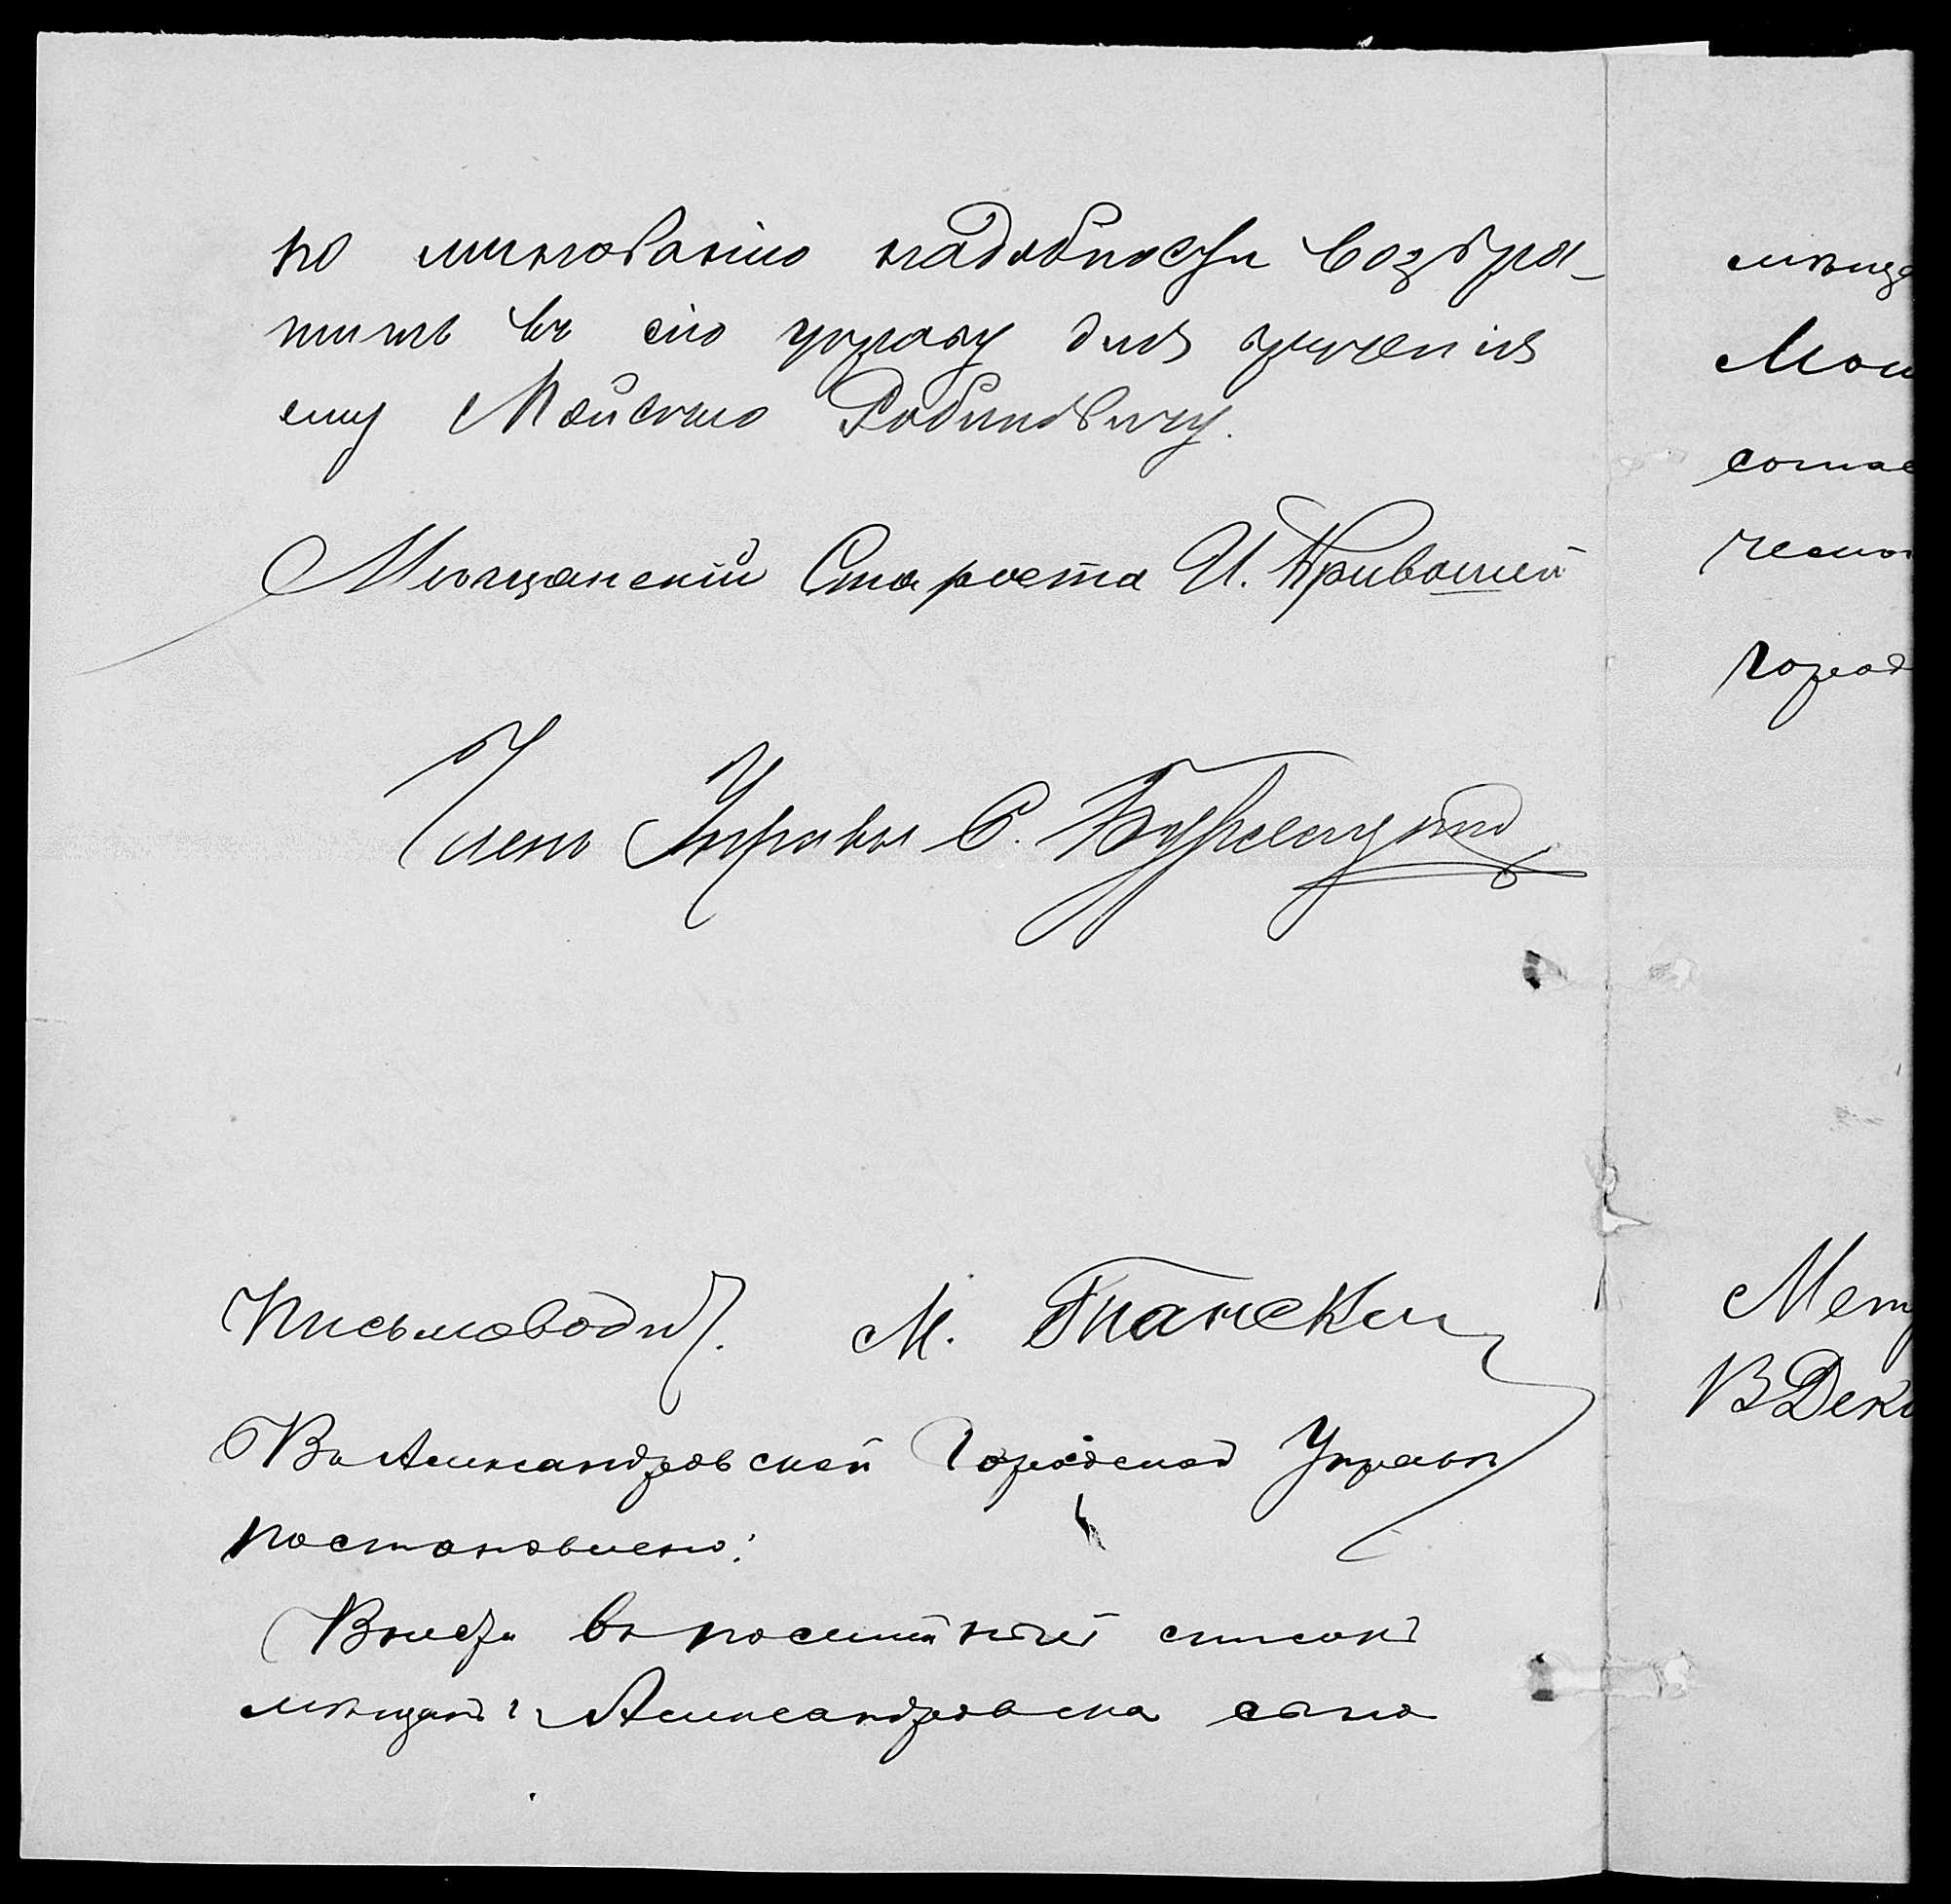 по минованію надобности возвра-
тить въ сію управу для врученія
ему Мойсею Рабиновичу.
Мѣщанскій Староста И. Кривошей
Членъ Управы С.
Письмоводит. М.
Въ Александровской Городской Управѣ
постановлено:
Внести въ посемейный списокъ
мѣщанъ г. Александровска сына
мѣща
Мои
соглас
ческо
город
Мет